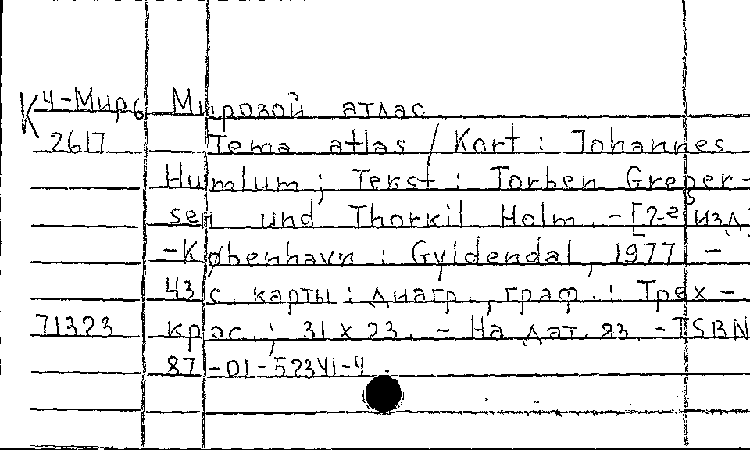 К 4-Миръ Мировой атлас
2617 Tema atlas / Kort : Johannes
Humlum ; Tekst : Torben Greger-
sen und Thorkil Holm. - [2-е изд.]
- København : Gyldendal, 1977. -
43 с. карты : диагр., граф. : Трех-
71323 крас. ; 31 x 23. - На дат. яз. - ISBN
87-01-52341-4.